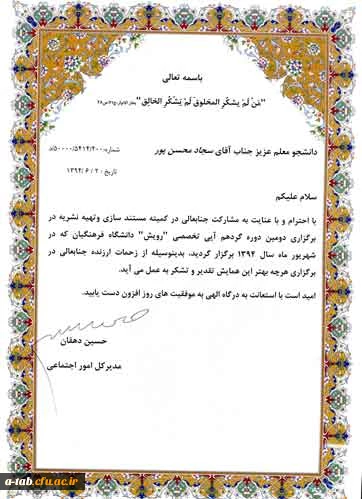 باسمه تعالی
"مَن لَم یشکُر المَخلوق لَم یَشکُر الخالِق"
دانشجو معلم عزیز جناب آقای سجاد محسن پور
شماره:۵۰۰۰۰/۵۴۱۴/۲۰۰/د
تاریخ: ۱۳۹۴/۶/۲۰
سلام علیکم
با احترام و با عنایت به مشارکت جنابعالی در کمیته مستند سازی وتهیه نشریه در
برگزاری دومین دوره گردهم آیی تخصصی "رویش" دانشگاه فرهنگیان که در
شهریور ماه سال ۱۳۹۴ برگزار گردید، بدینوسیله از زحمات ارزنده جنابعالی در
برگزاری هرچه بهتر این همایش تقدیر و تشکر به عمل می آید.
امید است با استعانت به درگاه الهی به موفقیت های روز افزون دست یابید.
حسین دهقان
مدیرکل امور اجتماعی
a-tab.cfu.ac.ir